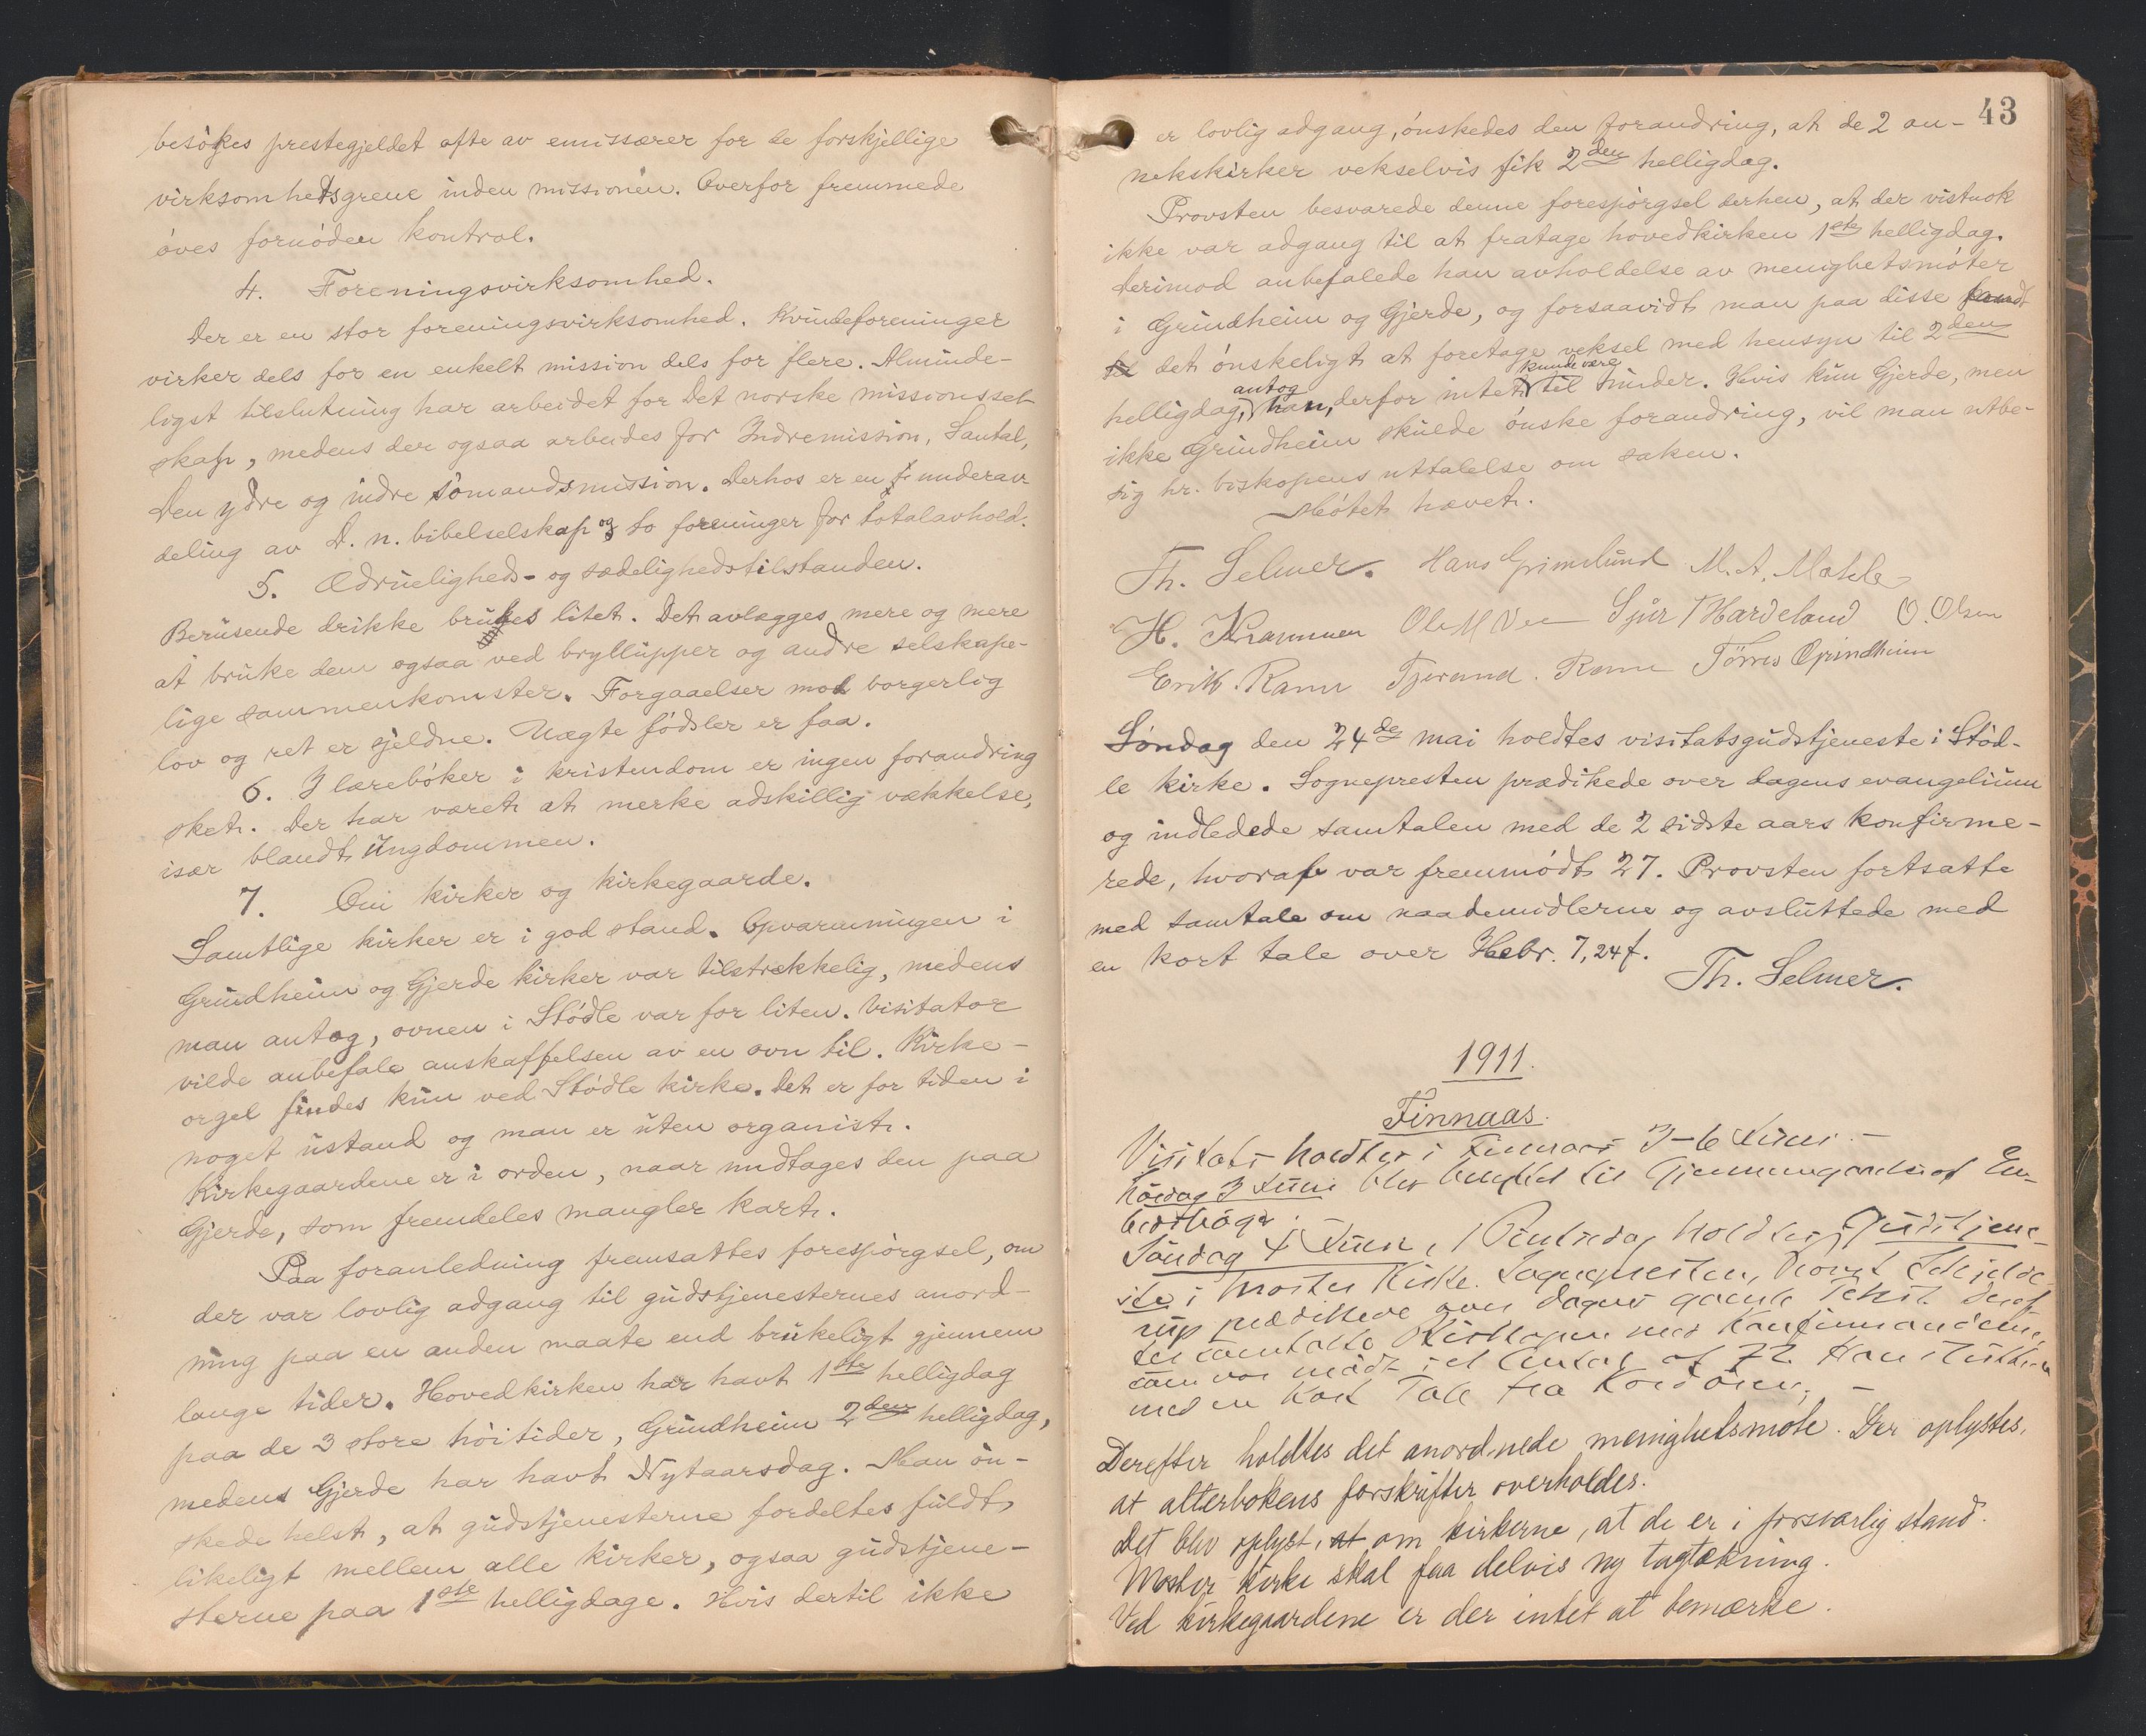 besøkes prestegjeldet ofte av emissærer for de forskjellige
virksomhetsgrene inden missionen. Overfor fremmede
øves fornøden kontrol.
4. Foreningsvirksomhed.
Der er en stor foreningsvirksomhed. Kvindeforeninger
virker dels for en enkelt mission dels for flere. Alminde-
ligst tilslutning har arbeidet for Det norske missionssel-
skap, medens der ogsaa arbeides for Indremission, Santal,
Den ydre og indre sømandsmission. Derhos er en underav
deling av D. n. bibelselskap og to foreninger for totalavhold.
5. Ædrueligheds- og sædelighedstilstanden.
Berusende drikke brukes litet. Det avlægges mere og mere
at bruke dem ogsaa ved bryllupper og andre selskape-
lige sammenkomster. Forgaaelser mod borgerlig
lov og ret er sjeldne. Uægte fødsler er faa.
6. I lærebøker i kristendom er ingen forandring
sket. Der har været at merke adskillig vækkelse,
især blandt ungdommen.
7. Om kirker og kirkegaarde.
Samtlige kirker er i god stand. Opvarmningen i
Grindheim og Gjerde kirker var tilstrækkelig, medens
man antog, ovnen i Stødle var for liten. Visitator
vilde anbefale anskaffelsen av en ovn til. Kirke-
orgel findes kun ved Stødle kirke. Det er for tiden i
noget ustand og man er uten organist.
Kirkegaardene er i orden, naar undtages den paa
Gjerde, som fremdeles mangler kart.
Paa foranledning fremsattes forespørgsel, om
der var lovlig adgang til gudstjenesternes anord-
ning paa en anden maate end brukeligt gjennem
lange tider. Hovedkirken har havt 1ste helligdag
paa de 3 store høitider, Grindheim 2den helligdag,
medens Gjerde har havt Nytaarsdag. Man øn-
skede helst, at gudstjenesterne fordeltes fuldt
likeligt mellem alle kirker, ogsaa gudstjene-
sterne paa 1ste helligdage. Hvis dertil ikke
43
er lovlig adgang, ønskedes den forandring, at de 2 an-
nekskirker vekselvis fik 2den helligdag.
Provsten besvarede denne forespørgsel derhen, at der vistnok
ikke var adgang til at fratage hovedkirken 1ste helligdag.
Derimod anbefalede han avholdelse av menighetsmøter
i Grindheim og Gjerde, og forsaavidt man paa disse fandt
det ønskeligt at foretage veksel med hensyn til 2den
helligdag, antog han, derfor intet kunde være til hinder. Hvis kun Gjerde, men
ikke Grindheim skulde ønske forandring, vil man utbe-
sig hr. biskopens uttalelse om saken.
Møtet hævet.
Th. Selmer. Hans Grimelund M. A. Mæhle
H. Krammen Ole M Vee Sjur T Hardeland O. Olsen
Erik. Ramn Tjerand. Ramn Tørres Grindheim
Søndag den 24de mai holdtes visitatsgudstjeneste i Stød-
le kirke. Sognepresten prædikede over dagens evangelium
og indledede samtalen med de 2 sidste aars konfirme-
rede, hvoraf var fremmødt 27. Provsten fortsatte
med samtale om naademidlerne og avsluttede med
en kort tale over Hebr. 7,24 f.
Th. Selmer.
1911.
Finnaas.
Visitats holdtes i Finnaas 3-6 Juni.
Lørdag 3 Juni blev benyttet til Gjennemgaaelse af Em-
bedsbøger.
Søndag 4 Juni, 1 Pintsedag holdtes Gudstjene-
ste i Moster Kirke. Sognepresten, Provst Schjelde-
rup prædikede over Dagens gamle Text. Deref-
ter samtalte Biskopen med Konfirmanderne,
som var mødt i et Antal af 72. Han sluttede
med en kort Tale fra Kordøren.
Derefter holdtes det anordnede menighetsmøte. Der oplystes,
at alterbokens forskrifter overholdes.
Det blev oplyst, at om kirkerne, at de er i forsvarlig stand.
Moster kirke skal faa delvis ny tagtækning.
Ved kirkegaardene er der intet at bemærke.